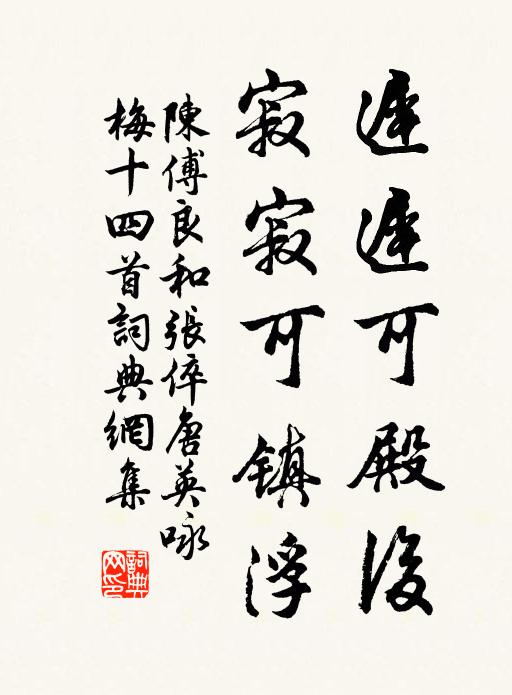 遲遲可殿後
寂寂可鎮浮
陳傅良和張倅唐英咏
梅十四首詞典網集
詞典
网印